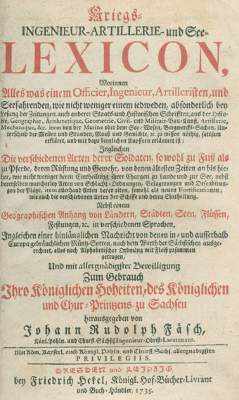 Kriegs-
INGENIEUR-ARTILLERIE-und See-
LEXICON,
Worinnen
Alles was einem Officier, Ingenieur, Artilleristen, und
Seefahrenden, wie nicht weniger einem iedweden, absonderlich bey
Lesung der Zeitungen, auch anderer Staats- und Historischen Schrifften, aus der
Geographie, Architectur, Geometrie, Civil- und Militair-Bau-Kunst, Artillerie,
Mechanique, &c. von der Marine oder dem See-Wesen,
zu wissen nöthig,
erkläret, und mit dazu
Ingleichen
Die verschiedenen Arten derer Soldaten, sowohl zu Fuß als
zu Pferde, deren Rüstung und Gewehr, von denen ältesten Zeiten an bis hie-
her, wie nicht weniger deren Eintheilung ihrer Übungen zu Lande und zur See,
mancherley Arten von Schlacht-Ordnungen, Belagerungen und
der Plätze, von
wie auch die verschiedenen Arten der Schiffe und deren
einem
Geographischen Anhang von Ländern, Städten, Seen, Flüssen,
Festungen, &c. in verschiedenen Sprachen,
Ingleichen einer hinlänglichen Nachricht von denen in- und ausserhalb
Europa gebräuchlichen Müntz-Sorten, nach dem Werth der Sächsischen ausge-
rechnet, alles nach Alphabetischer Ordnung mit Fleiß zusammen
getragen,
Und mit allergnädigster Bewilligung
Zum Gebrauch
Ihro Königlichen Hoheiten, des Königlichen
und Chur-Printzens zu Sachsen
herausgegeben von
Johann Rudolph Fäsch,
Königl. Pohln. und Churfl. Sächs. Ingenieur-Obrist-Lieutenant.
Mit Röm. Kayserl. auch Königl. Pohln. und Churfl. Sächs. allergnädigsten
PRIVILEGIIS.
DRESDEN und LEIPZIG,
bey Friedrich Hekel, Königl. Hof-Bücher-Livrant
und Buch-Händler. 1735.